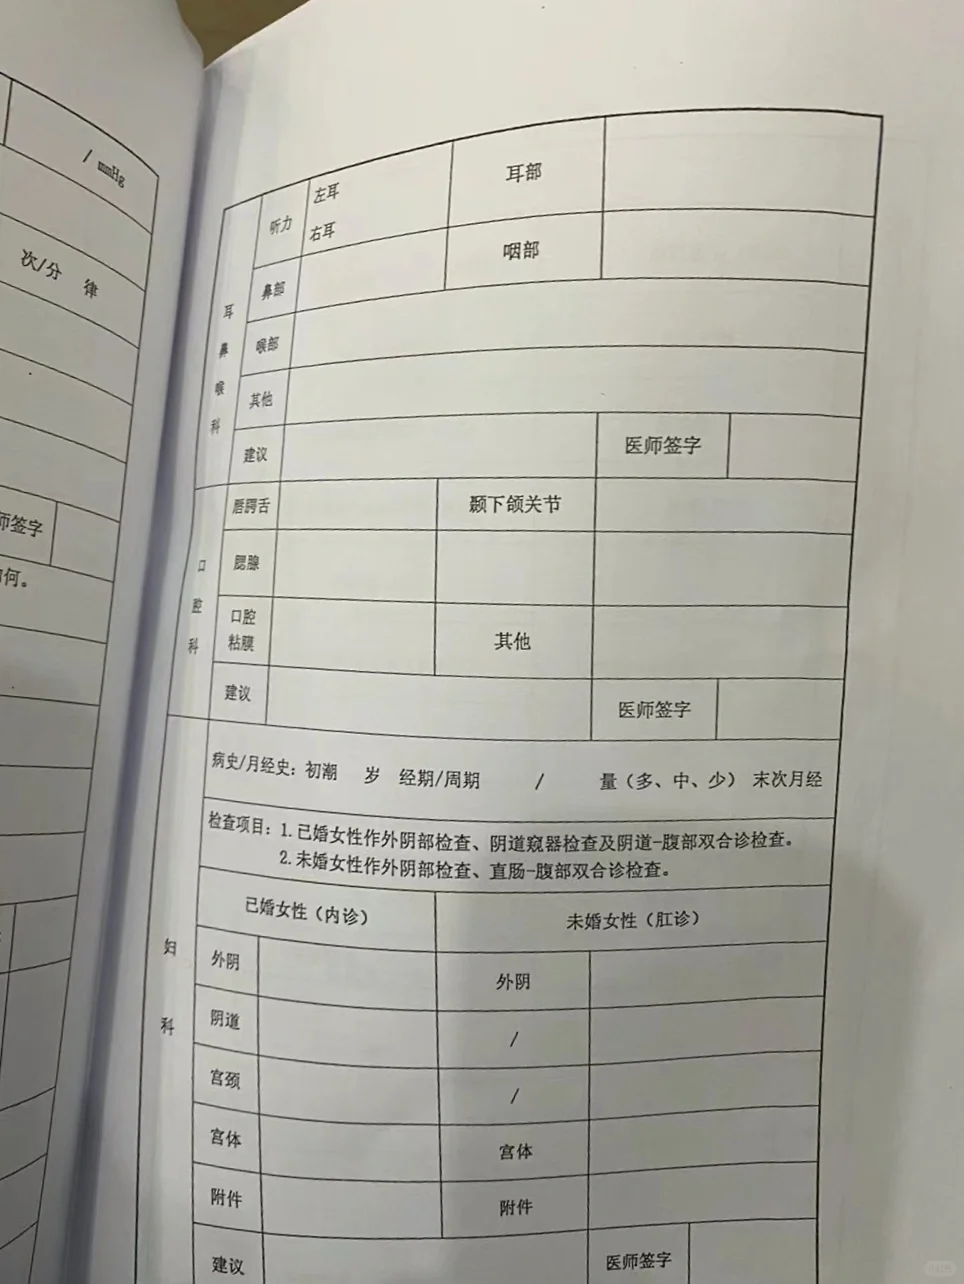 / mmHg
次/分 律
师签字
何。
耳鼻喉科
听力
左耳
右耳
耳部
鼻部
咽部
喉部
其他
建议
医师签字
口腔科
唇腭舌
颞下颌关节
腮腺
口腔
粘膜
其他
建议
医师签字
妇科
病史/月经史：初潮 岁 经期/周期 / 量（多、中、少） 末次月经
检查项目：1.已婚女性作外阴部检查、阴道窥器检查及阴道-腹部双合诊检查。
2.未婚女性作外阴部检查、直肠-腹部双合诊检查。
已婚女性（内诊）
未婚女性（肛诊）
外阴
外阴
阴道
/
宫颈
/
宫体
宫体
附件
附件
建议
医师签字